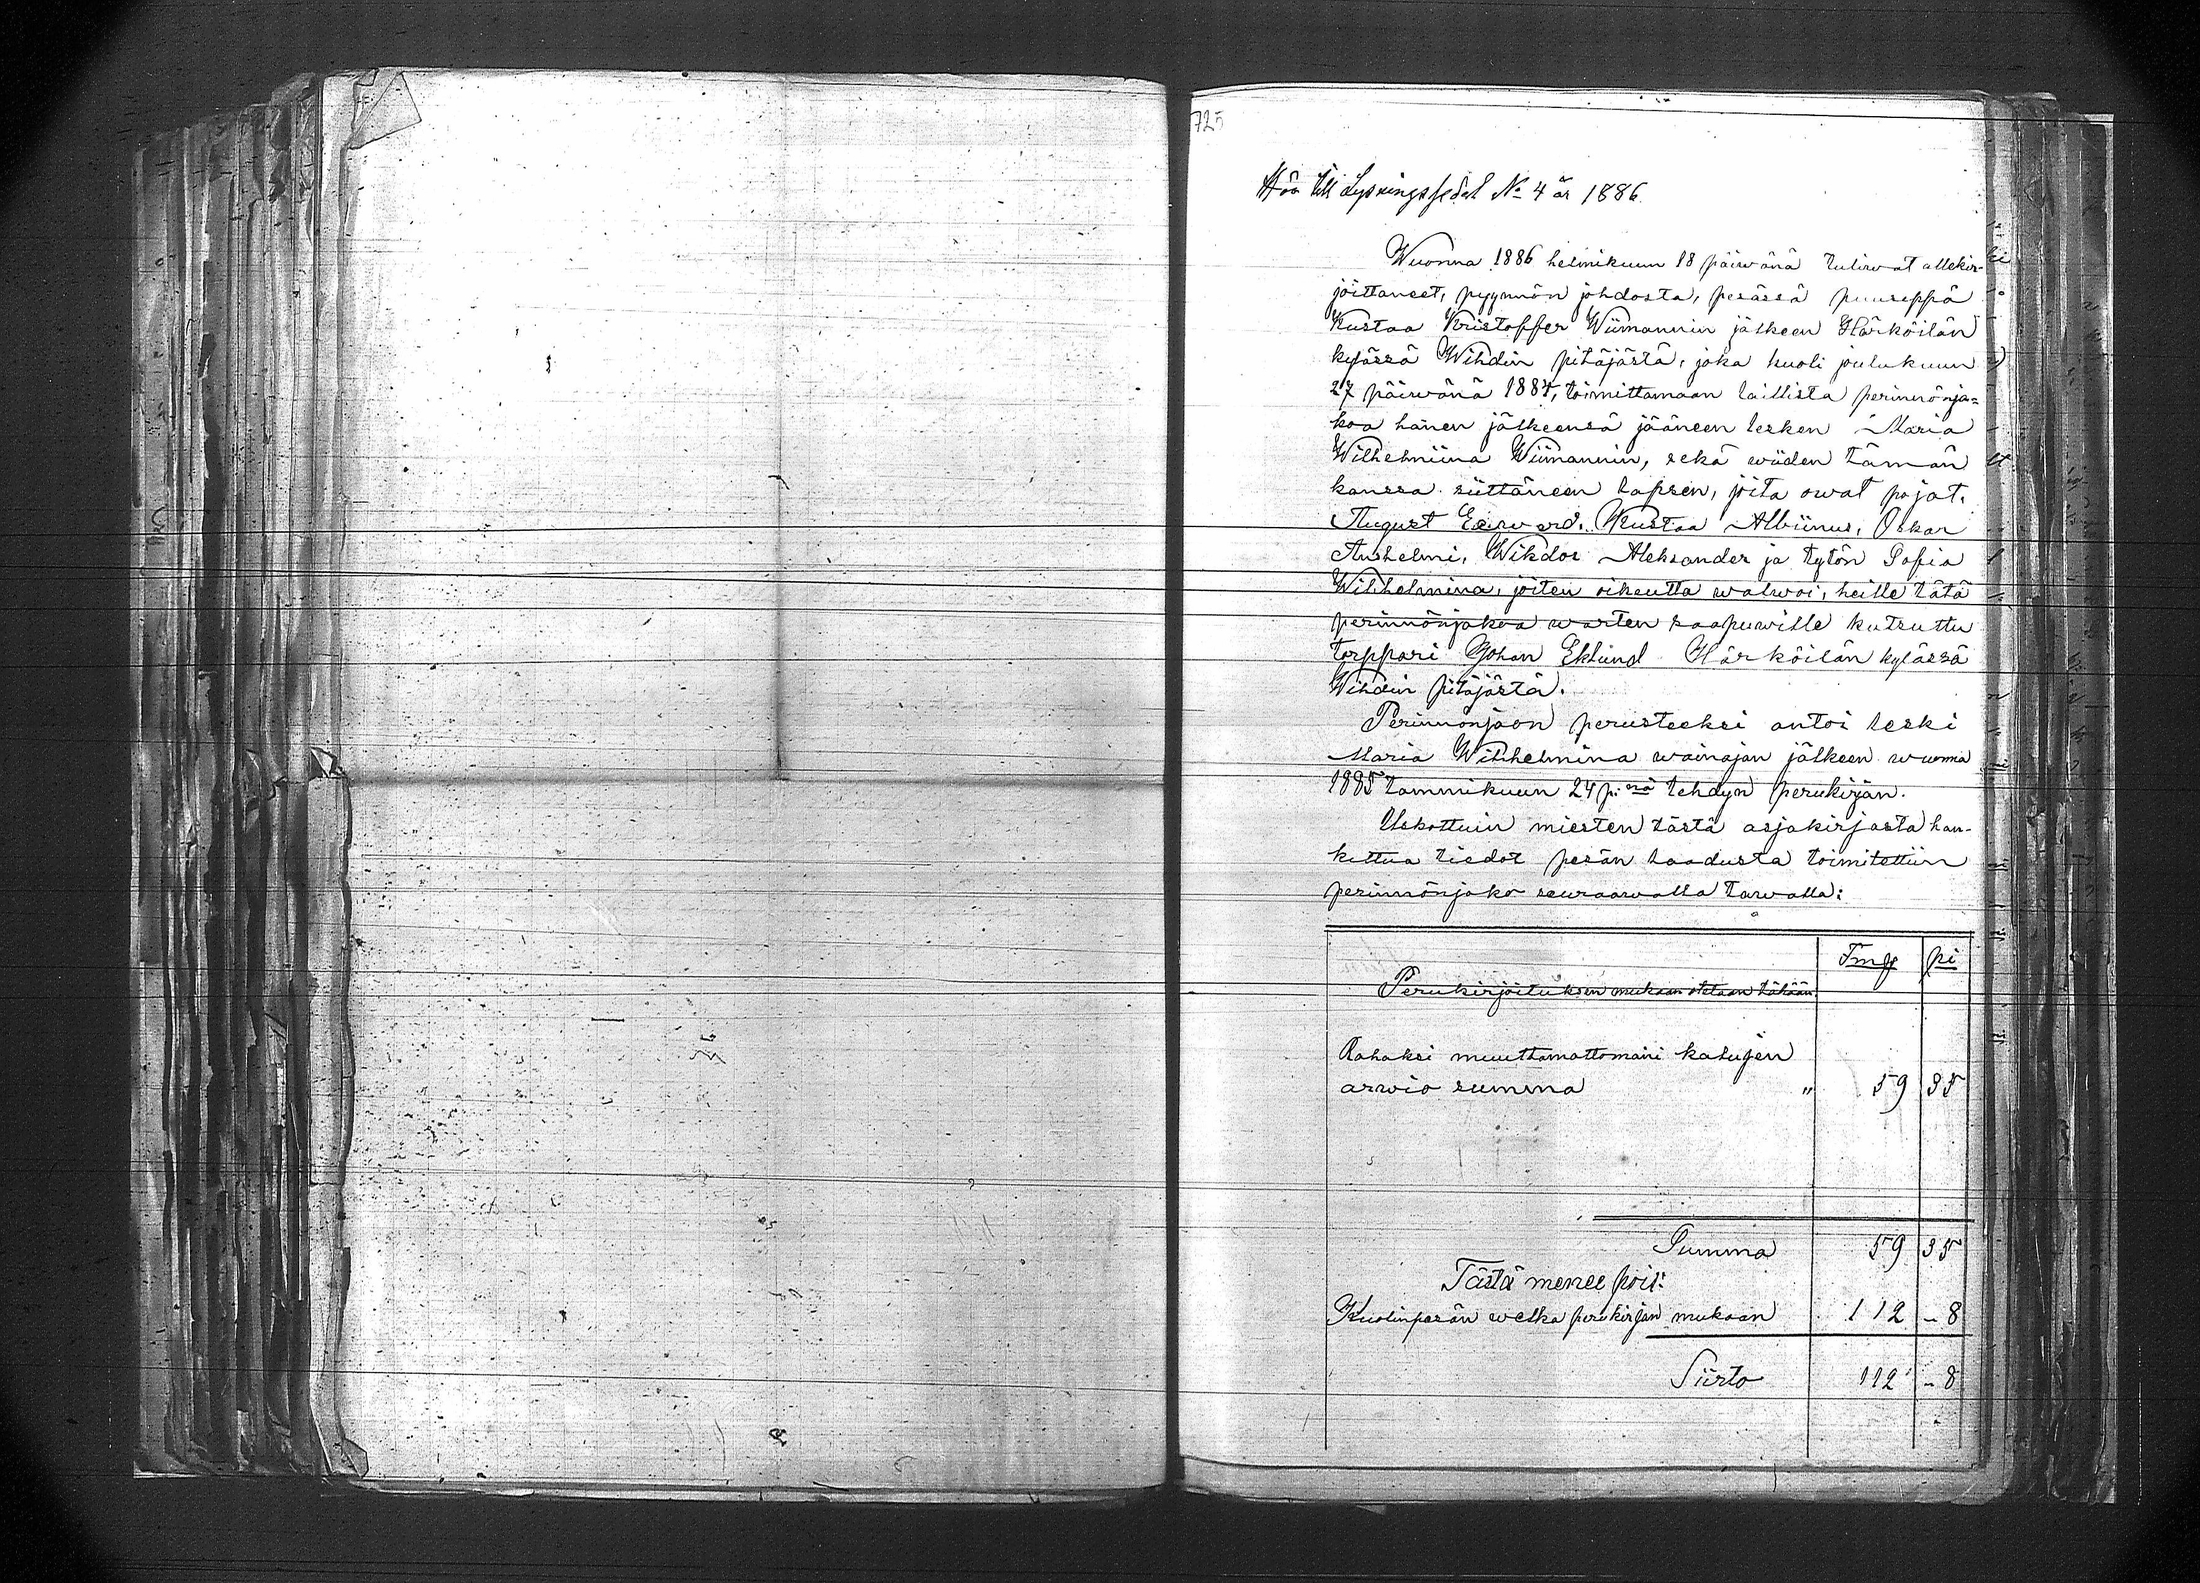 725
Hör till Lysningssedel No 4 år 1886.
Wuonna 1886 helmikuun 18 päiwänä tuliwat allekir-
joittaneet, pyynnön johdosta, pesässä puuseppä
Kustaa Kristoffer Wiimannin jälkeen Härköilän
kylässä Wihdin pitäjästä, joka kuoli joulukuun
27 päiwänä 1884, toimittamaan laillista perinnönja=
koa hänen jälkeensä jääneen lesken Maria
Wilhelmiina Wiimannin, sekä wiiden tämän
kanssa siittäneen lapsen, joita owat pojat.
August Eerward, Kustaa Albiinus, Oskar
Anshelmi, Wikdor Aleksander ja tytön Sofia
Wilhelmina, joiten oikeutta walwoi, heille tätä
perinnönjakoa warten saapuwille kutsuttu
torppari Johan Eklund Härköilän kylässä
Wihdin pitäjästä.
Perinnönjaon perusteeksi antoi leski
Maria Wilhelmina wainajan jälkeen wuonna
1885 tammikuun 24 p:nä tehdyn perukirjan.
Uskottuin miesten tästä asjakirjasta han-
kittua tiedot pesän laadusta toimitettiin
perinnönjako seuraawalla tawalla:
Fmg pi
Perukirjoituksen mukaan otetaan tähään
Rahaksi muuttamattomain kalujen
arwio summa " 59 35
Summa 59 35
Tästä menee pois:
Kuolinpesän welka perukirjan mukaan 112 - 8
Siirto 112 - 8